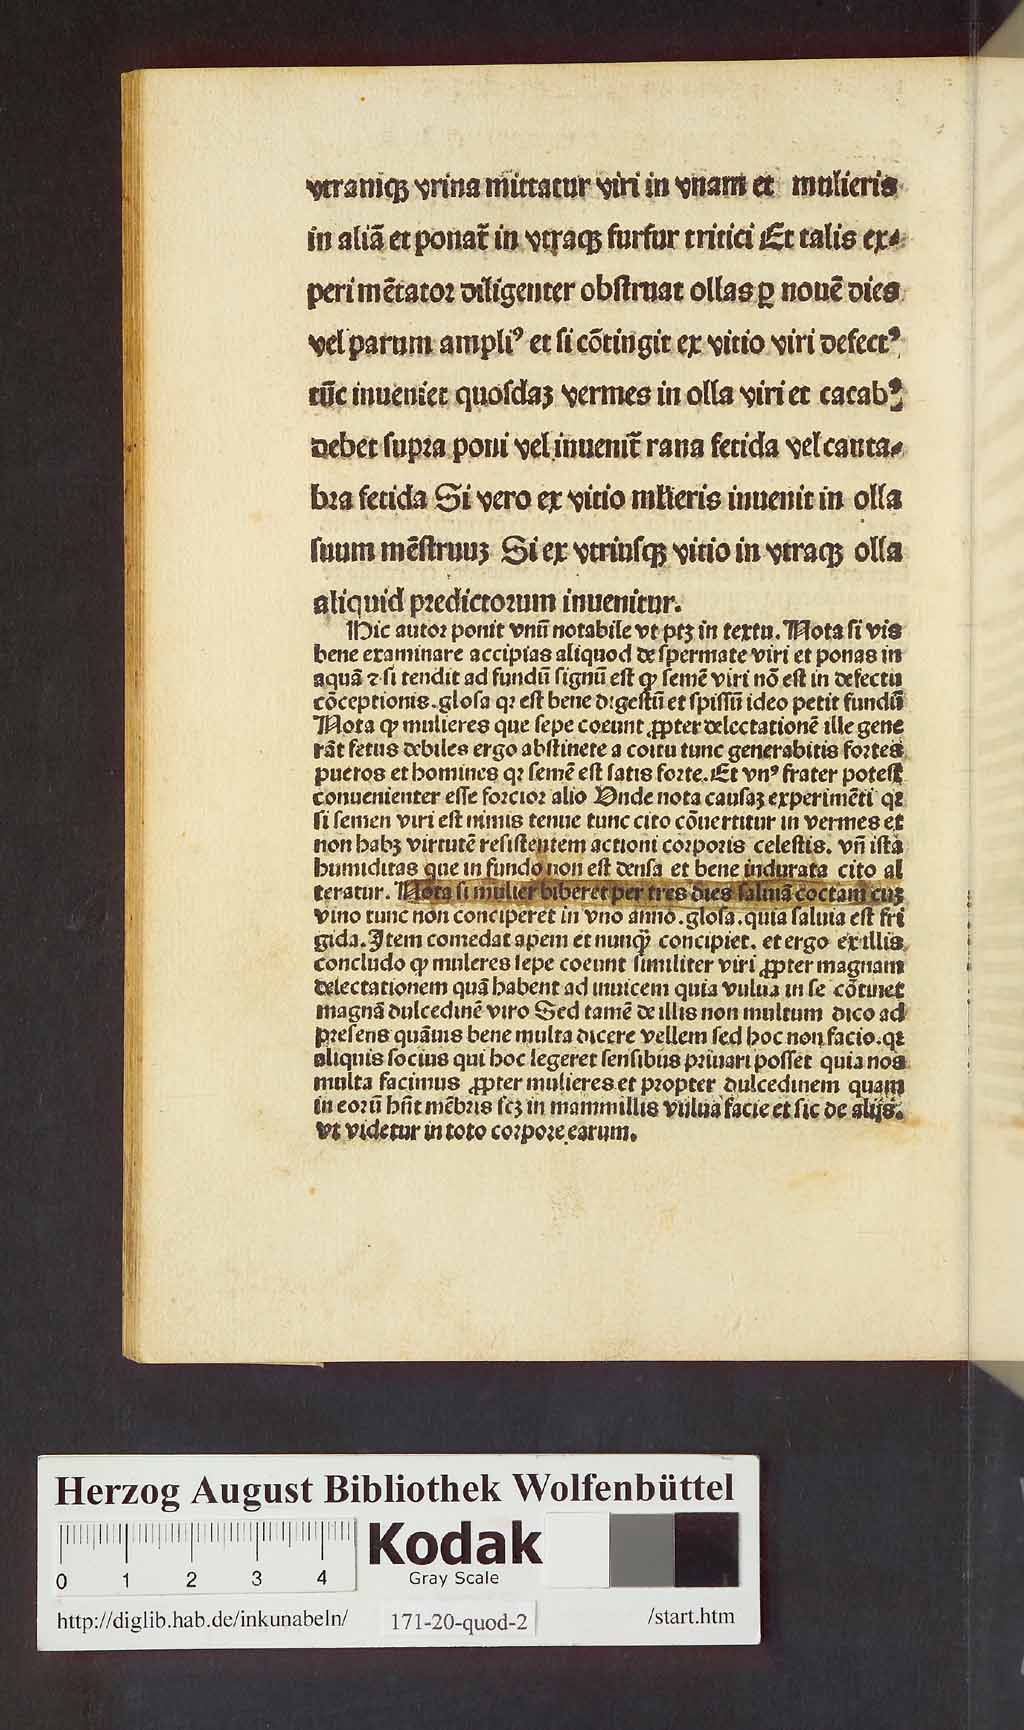 vtramqꝫ vrina mittatur viri in vnam et mulieris
in aliā et ponat᷑ in vtraqꝫ furfur tritici Et talis ex⸗
perimētator diligenter obstruat ollas ꝑ nouē dies
vel parum ampliꝰ et si cōtingit ex vitio viri defectꝰ
tūc inueniet quosdaꝫ vermes in olla viri et cacabꝰ
debet supra poni vel inuenit᷑ rana fetida vel canta⸗
bra fetida Si vero ex vitio mľieris inuenit in olla
suum mēstruuꝫ Si ex vtriusqꝫ vitio in vtraqꝫ olla
aliquid predictorum inuenitur.
Hic autor ponit vnū notabile vt ptꝫ in textu. Nota si vis
bene examinare accipias aliquod de spermate viri et ponas in
aquā ⁊ si tendit ad fundū signū est ꝙ semē viri nō est in defectu
cōceptionis. glosa qꝛ est bene digestū et spissū ideo petit fundū
Nota ꝙ mulieres que sepe coeunt ꝓpter delectationē ille gene
rāt fetus debiles ergo abstinete a coitu tunc generabitis fortes
pueros et homines qꝛ semē est satis forte. Et vnꝰ frater potest
conuenienter esse forcior alio Vnde nota causaꝫ experimēti qꝛ
si semen viri est nimis tenue tunc cito cōuertitur in vermes et
non habꝫ virtutē resistentem actioni corporis celestis. vn̄ ista
humiditas que in fundo non est densa et bene indurata cito al
teratur. Nota si mulier biberet per tres dies saluiā coctam cuꝫ
vino tunc non conciperet in vno anno. glosa. quia saluia est fri
gida. Item comedat apem et nunqꝫ̄ concipiet. et ergo ex illis
concludo ꝙ muleres sepe coeunt similiter viri ꝓpter magnam
delectationem quā habent ad inuicem quia vulua in se cōtinet
magnā dulcedinē viro Sed tamē de illis non multum dico ad
presens quāuis bene multa dicere vellem sed hoc non facio. qꝛ
aliquis socius qui hoc legeret sensibus priuari posset quia nos
multa facimus ꝓpter mulieres et propter dulcedinem quam
in eorū hn̄t mēbris scꝫ in mammillis vulua facie et sic de alijs.
vt videtur in toto corpore earum.
Herzog August Bibliothek Wolfenbüttel
Kodak
Gray Scale
0 1 2 3 4
http://diglib.hab.de/inkunabeln/ 171-20-quod-2 /start.htm